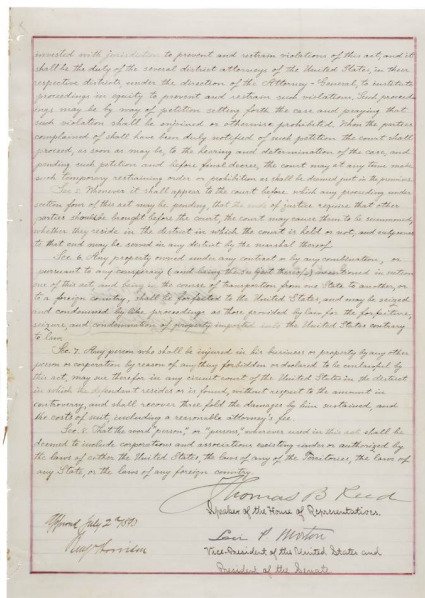 invested with jurisdiction to prevent and restrain violations of this act, and it
shall be the duty of the several district attorneys of the United States, in their
respective districts, under the direction of the Attorney-General, to institute
proceedings in equity to prevent and restrain such violations. Such proceed-
ings may be by way of petition setting forth the case and praying that
such violation shall be enjoined or otherwise prohibited. When the parties
complained of shall have been duly notified of such petition the court shall
proceed, as soon as may be, to the hearing and determination of the case; and
pending such petition and before final decree, the court may at any time make
such temporary restraining order or prohibition as shall be deemed just in the premises.
Sec. 5. Whenever it shall appear to the court before which any proceeding under
section four of this act may be pending, that the ends of justice require that other
parties should be brought before the court, the court may cause them to be summoned,
whether they reside in the district in which the court is held or not; and subpoenas
to that end may be served in any district by the marshal thereof.
Sec. 6. Any property owned under any contract or by any combination, or
pursuant to any conspiracy (and being the subject thereof) mentioned in section
one of this act, and being in the course of transportation from one State to another, or
to a foreign country, shall be forfeited to the United States, and may be seized
and condemned by like proceedings as those provided by law for the forfeiture,
seizure, and condemnation of property imported into the United States contrary
to law.
Sec. 7. Any person who shall be injured in his business or property by any other
person or corporation by reason of anything forbidden or declared to be unlawful by
this act, may sue therefor in any circuit court of the United States in the district
in which the defendant resides or is found, without respect to the amount in
controversy, and shall recover three fold the damages by him sustained, and
the costs of suit, including a reasonable attorney's fee.
Sec. 8. That the word "person," or "persons," wherever used in this act shall be
deemed to include corporations and associations existing under or authorized by
the laws of either the United States, the laws of any of the Territories, the laws of
any State, or the laws of any foreign country.
Thomas B Reed
Speaker of the House of Representatives.
Approved July 2d 1890
Levi P Morton
Benj Harrison
Vice-President of the United States and
President of the Senate